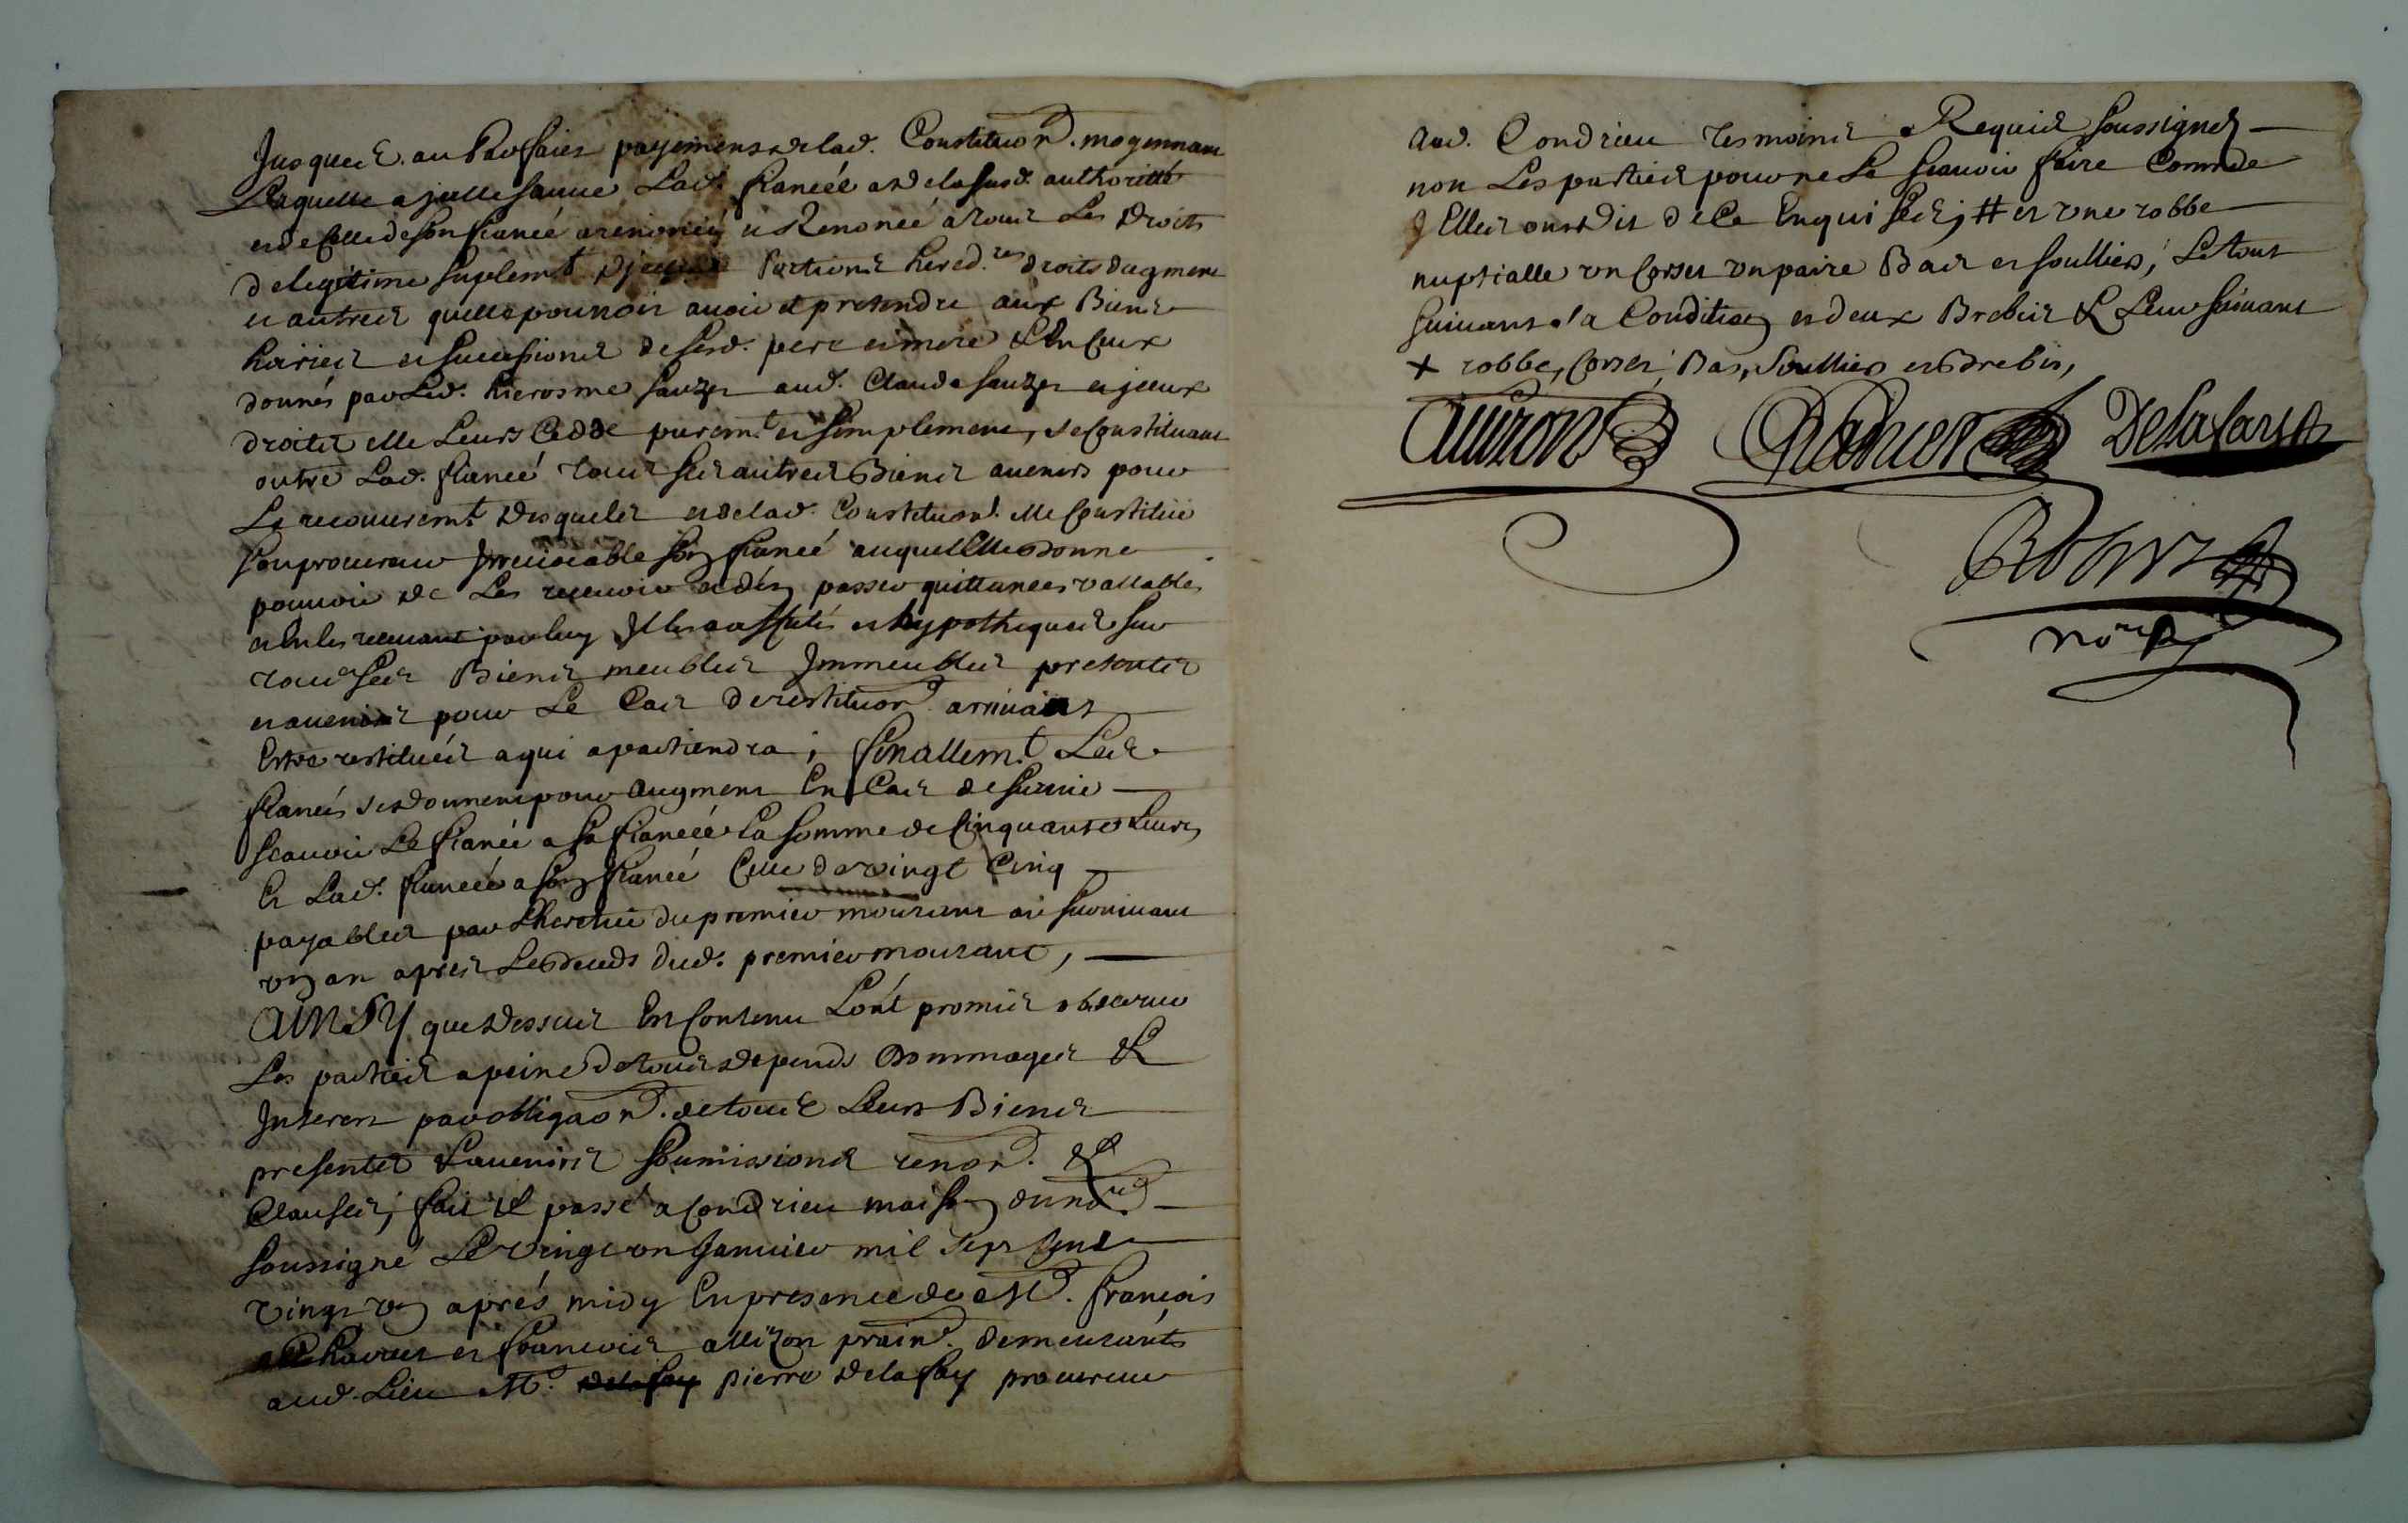 Jusques au parfaict payement de lad. Constituon. moyennant
Laquelle lad. fiancée a de la susd. authorité
et de celle de son fiancé a renoncé et Renonce a tous Les Droits
de legitime suplemt. portions hered.res droits d'augment
et autres quelle pourroit avoir et pretendre aux Biens
hoiries et successions de sesd. pere et mere & En ceux
donnés par led. hierosme sauzet aud. Claude sauzet et jceux
droits elle Leurs Cedde puremt. et simplement, se Constituant
outre Lad. fiancée tous ses autres Biens avenirs pour
Le recouvremt. desquels et de lad. Constituon. elle Constitue
son procureur Jrrevocable son fiancé auquel Elle donne
pouvoir de Les recevoir et den passer quittances vallables
et En les recevant par luy Jl les a et hypothequés sur
tous ses Biens meubles Jmmeubles presents
et avenirs pour Le Cas de restituon. arrivant
Estre restitués a qui apartiendra; finallemt. Les
fiancés se donnent pour augment En Cas de survie
scavoir Le fiancé a sa fiancée La somme de Cinquante Livres
Et Lad. fiancée a son fiancé Celle de vingt Cinq
payables par L'heritier du premier mourant au survivant
un an apres Le deceds dud. premier mourant,
AINSY que dessus Est Contenu L'ont promis observer
Les parties a peine de tous depends Dommages &
Jnterets par obligaon. de tous Leurs Biens
presents & avenirs soumissions renon. &
Clauses; fait et passé a Condrieu maison du no.re
soussigné Le vingt un Janvier mil sept Cent
vingt un aprés midy En presence de M. françois
et francois allizon prain. demeurants
aud. Lieu M. pierre delafay procureur
aud. Condrieu tesmoins Requis soussignes
non Les parties pour ne Le scavoir faire Comme
Jelles ont dit de Ce Enquises; # et une robbe
nuptialle un Corset un paire Bas et soulliers, Le tout
suivant sa Condition et deux Brebis & Leur suivant
+ robbe, Corset, Bas, Soulliers et Brebis,
no.re